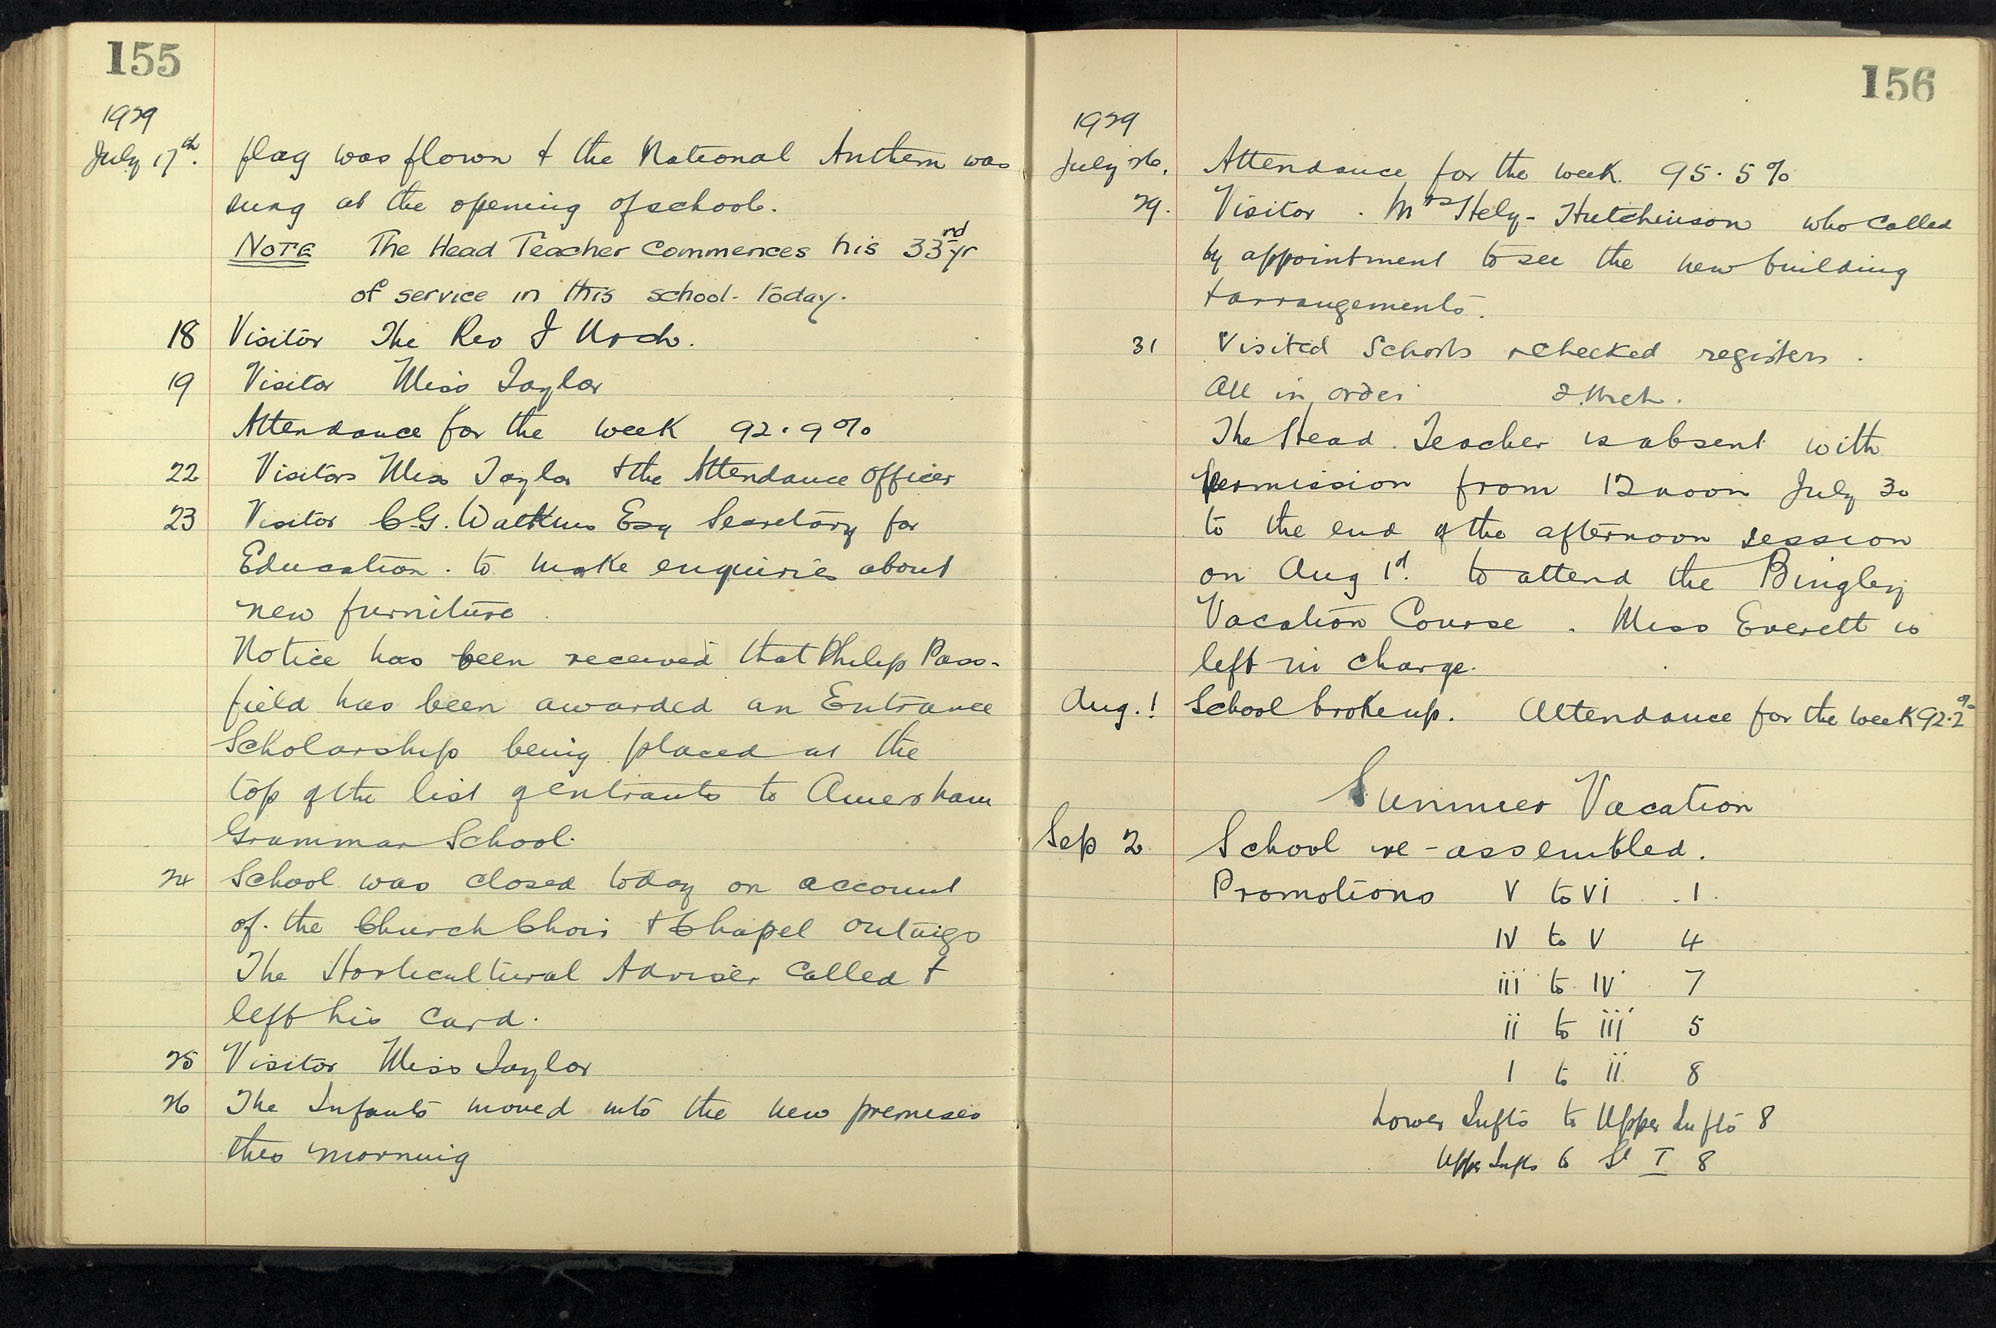 155
1929
July 17th. flag was flown & the National Anthem was
sung at the opening of school.
NOTE The Head Teacher commences his 33rd yr
of service in this school today.
18 Visitor The Rev J Urch.
19 Visitor Miss Taylor
Attendance for the week 92.9%
22 Visitors Miss Taylor & the Attendance Officer
23 Visitor C.G. Watkins Esq Secretary for
Education. to make enquiries about
new furniture.
Notice has been received that Philip Pass-
field has been awarded an Entrance
Scholarship being placed at the
top of the list of entrants to Amersham
Grammar School.
24 School was closed today on account
of the Church Choir & Chapel outings
The Horticultural Adviser called &
left his card.
25 Visitor Miss Taylor
26 The Infants moved into the new premises
this morning
156
1929
July 26. Attendance for the week 95.5%
29. Visitor. Mrs Hely-Hutchinson who called
by appointment to see the new building
& arrangements.
31 Visited Schools & checked registers.
All in order J. Urch.
The Head Teacher is absent with
permission from 12 noon July 30
to the end of the afternoon session
on Aug 1st. to attend the Bingley
Vacation Course. Miss Everett is
left in charge.
Aug. 1 School broke up. Attendance for the week 92.2%
Summer Vacation
Sep 2. School re-assembled.
Promotions V to VI 1.
IV to V 4
iii to IV 7
ii to iii 5
I to ii 8
Lower Infts to Upper Infts 8
Upper Infts to St I 8